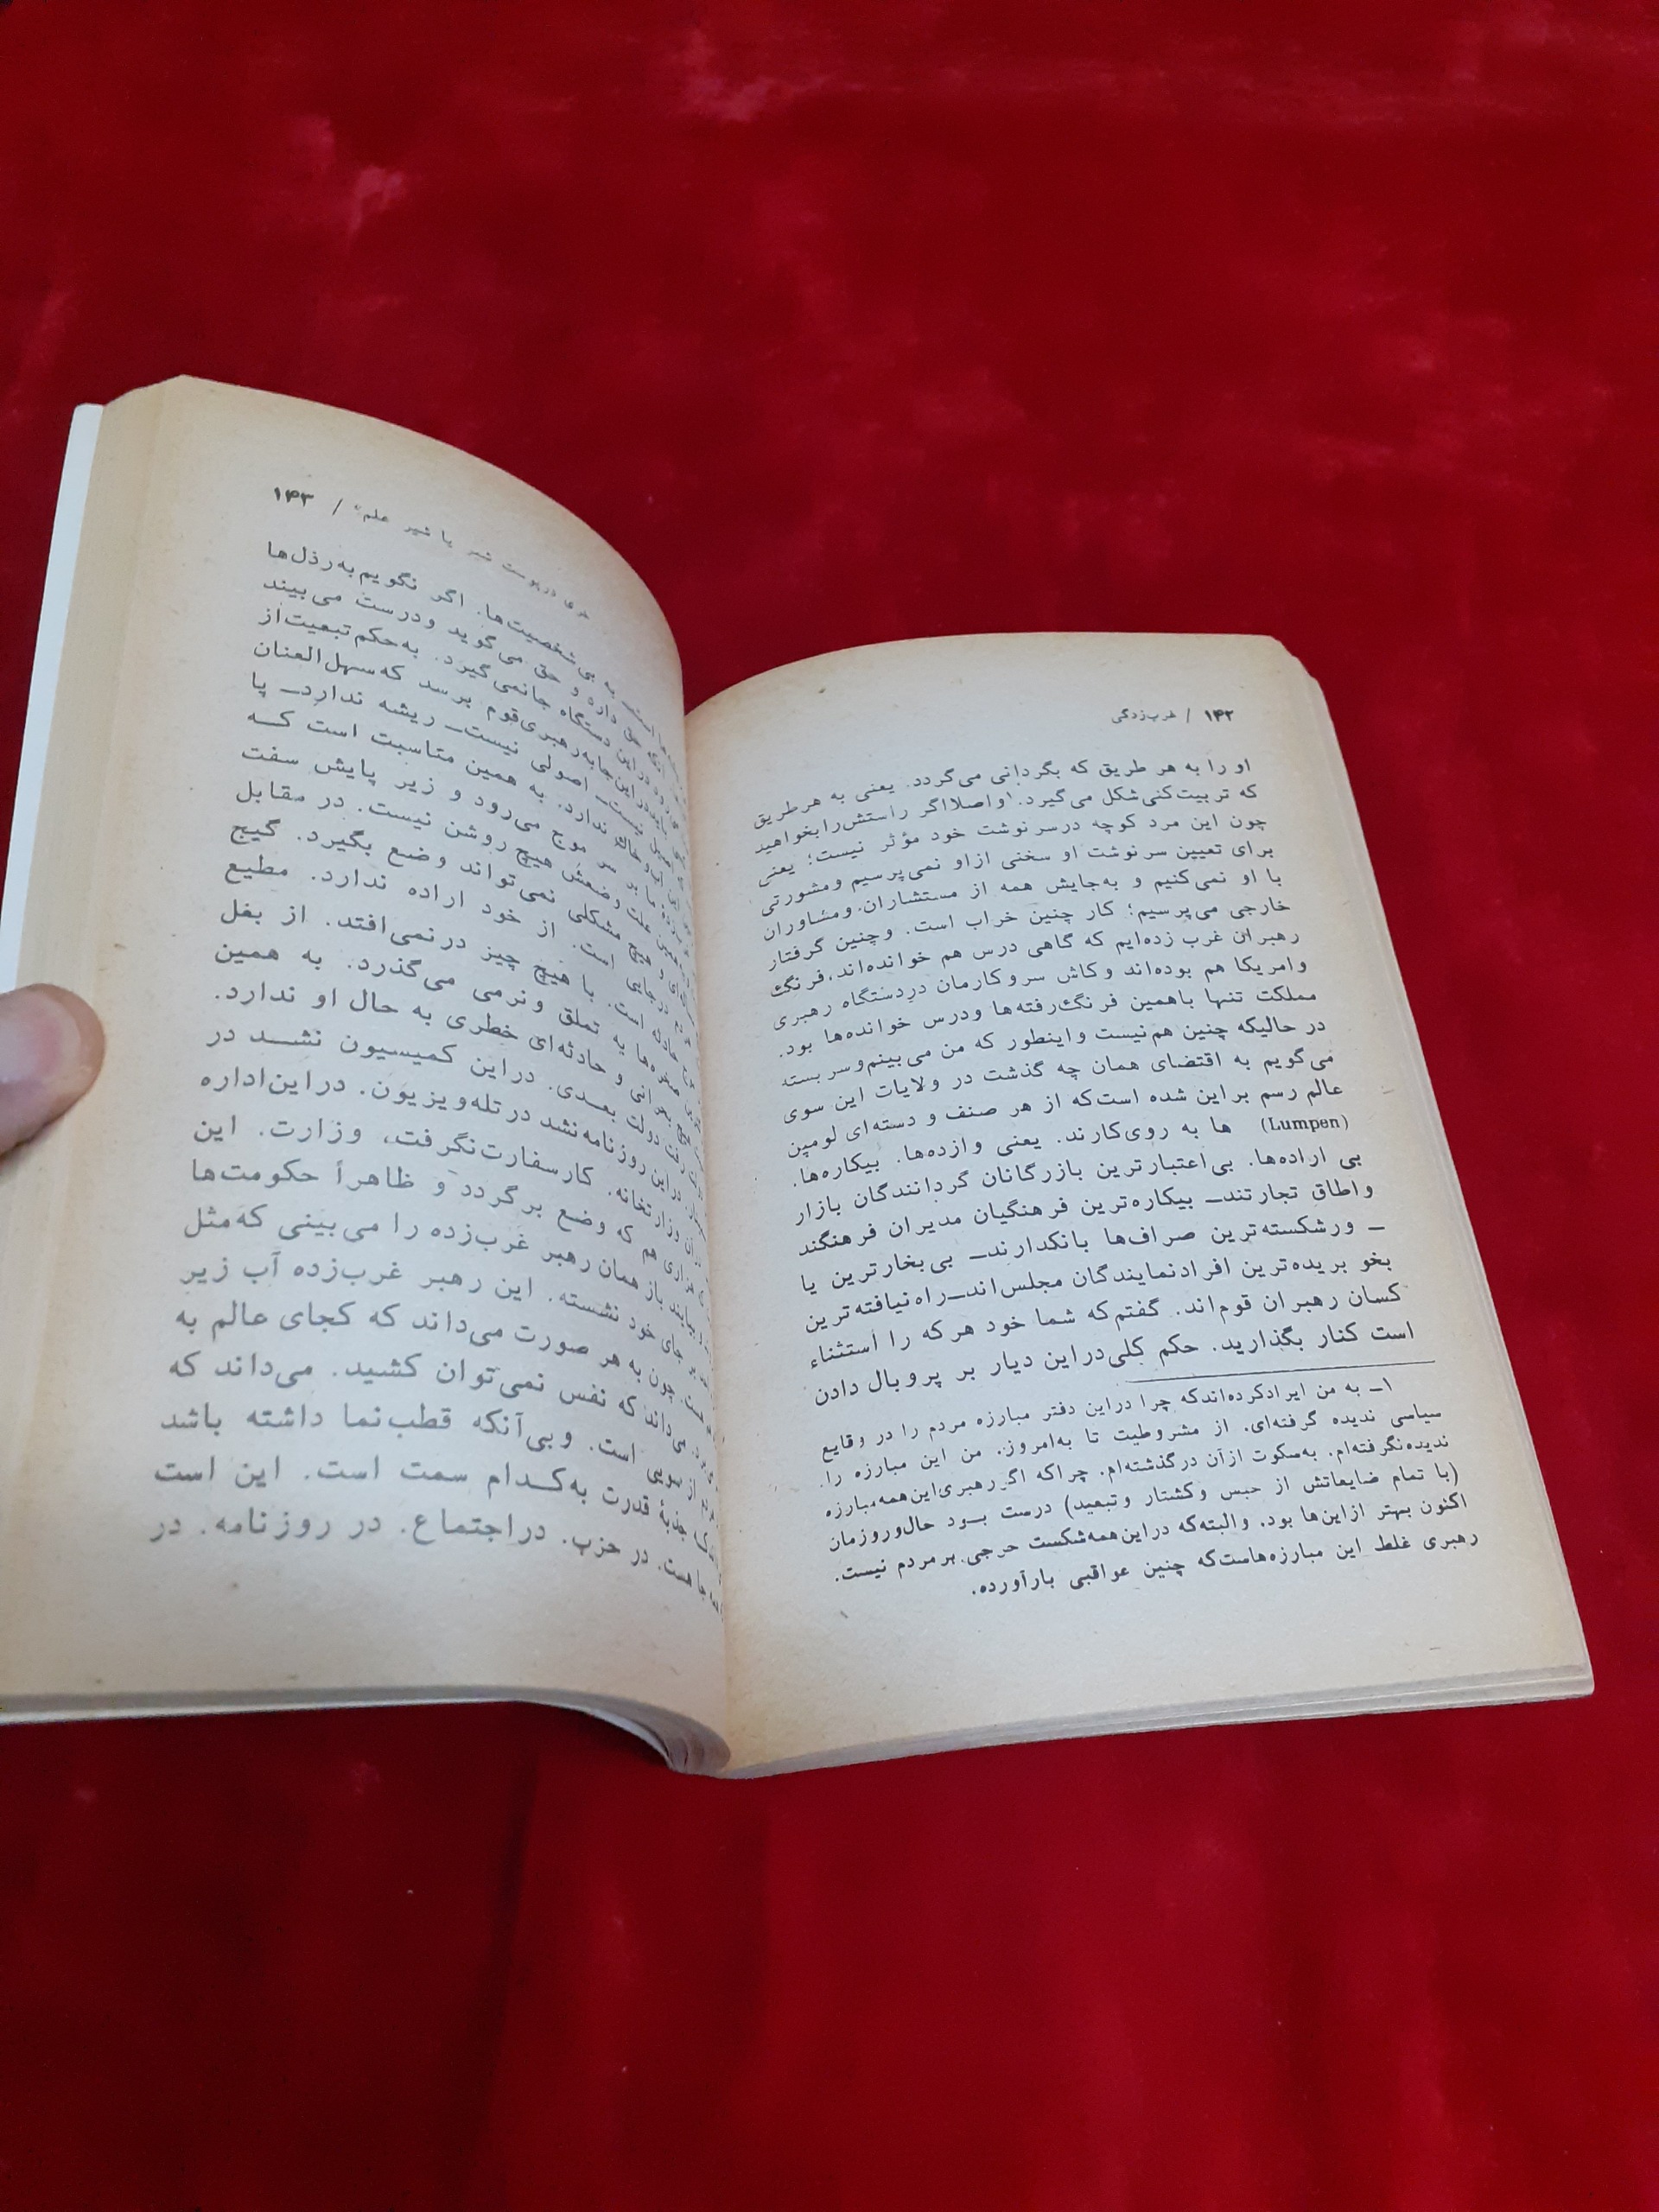 ۱۴۲ / غرب‌زدگی
او را به هر طریق که بگردانی می‌گردد. یعنی به هرطریق
که تربیت‌کنی شکل می‌گیرد.۱ واصلا اگر راستش را بخواهید
چون این مرد کوچه درسرنوشت خود مؤثر نیست؛ یعنی
برای تعیین سرنوشت او سخنی ازاو نمی‌پرسیم ومشورتی
با او نمی‌کنیم و به‌جایش همه از مستشاران ومشاوران
خارجی می‌پرسیم؛ کار چنین خراب است. وچنین گرفتار
رهبران غرب زده‌ایم که گاهی درس هم خوانده‌اند، فرنگ
وامریکا هم بوده‌اند وکاش سروکارمان دردستگاه رهبری
مملکت تنها باهمین فرنگ‌رفته‌ها ودرس خوانده‌ها بود.
در حالیکه چنین هم‌نیست واینطور که من می‌بینم‌وسر بسته
می‌گویم به اقتضای همان چه گذشت در ولایات این سوی
عالم رسم براین شده است‌که از هر صنف و دسته‌ای لومپن
(Lumpen) ها به روی‌کارند. یعنی وازده‌ها. بیکاره‌ها.
بی اراده‌ها. بی‌اعتبارترین بازرگانان گردانندگان بازار
واطاق تجارتند_ بیکاره‌ترین فرهنگیان مدیران فرهنگند
_ ورشکسته‌ترین صراف‌ها بانکدارند_ بی‌بخارترین یا
بخو بریده‌ترین افرادنمایندگان مجلس‌اند_راه نیافته‌ترین
کسان رهبران قوم‌اند. گفتم‌که شما خود هرکه را استثناء
است کنار بگذارید. حکم کلی‌دراین دیار بر پروبال دادن
۱_ به من ایرادکرده‌اندکه چرا دراین دفتر مبارزه مردم را در وقایع
سیاسی ندیده گرفته‌ای. از مشروطیت تا به‌امروز. من این مبارزه را
ندیده‌نگرفته‌ام. به‌سکوت ازآن درگذشته‌ام. چراکه اگر رهبری‌این همه‌مبارزه
(با تمام ضایعاتش از حبس وکشتار وتبعید) درست بود حال‌وروزمان
اکنون بهتر ازاین‌ها بود. والبته‌که دراین‌همه‌شکست حرجی برمردم نیست.
رهبری غلط این مبارزه‌هاست‌که چنین عواقبی بارآورده.
خری درپوست شیر یا شیر علم؟ / ۱۴۳
به بی‌شخصیت‌ها. اگر نگویم به‌رذل‌ها
حق دارد و حق می‌گوید ودرست می‌بیند
دراین دستگاه جانمی‌گیرد. به‌حکم تبعیت‌از
به‌رهبری‌قوم برسد که‌سهل‌العنان
نیست_ اصولی نیست_ ریشه ندارد_ پا
ندارد. به همین متاسبت است که
ما بر سر موج می‌رود و زیر پایش سفت
علت وضعش هیچ روشن نیست. در مقابل
و هیچ مشکلی نمی‌تواند وضع بگیرد. گیج
است. از خود اراده ندارد. مطیع
است. با هیچ چیز درنمی‌افتد. از بغل
به تملق ونرمی می‌گذرد. به همین
بحرانی و حادثه‌ای خطری به حال او ندارد.
دولت بعدی. دراین کمیسیون نشد در
دراین روزنامه‌نشد درتله‌ویزیون. دراین‌اداره
وزارتخانه. کارسفارت‌نگرفت، وزارت. این
هم که وضع برگردد و ظاهراً حکومت‌ها
باز همان رهبر غرب‌زده را می‌بینی که‌مثل
بر جای خود نشسته. این رهبر غرب‌زده آب زیر
است. چون به هر صورت می‌داند که کجای عالم به
می‌داند که نفس نمی‌توان کشید. می‌داند که
از سویی است. وبی‌آنکه قطب‌نما داشته باشد
جذبهٔ قدرت به‌کدام سمت است. این است
هست. در حزب. دراجتماع. در روزنامه. در